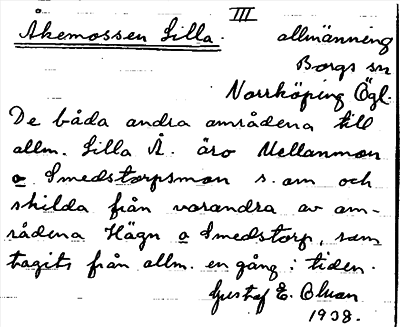 III
Åkemossen Lilla. allmänning
Borgs sn
Norrköping Ögl.
De båda andra områdena till
allm. Lilla Å. äro Mellanmon
o Smedstorpsmon s. om och
skilda från varandra av om-
rådena Hägn o Smedstorp, som
tagits från allm. en gång i tiden.
Gustaf E. Olsson
1938.